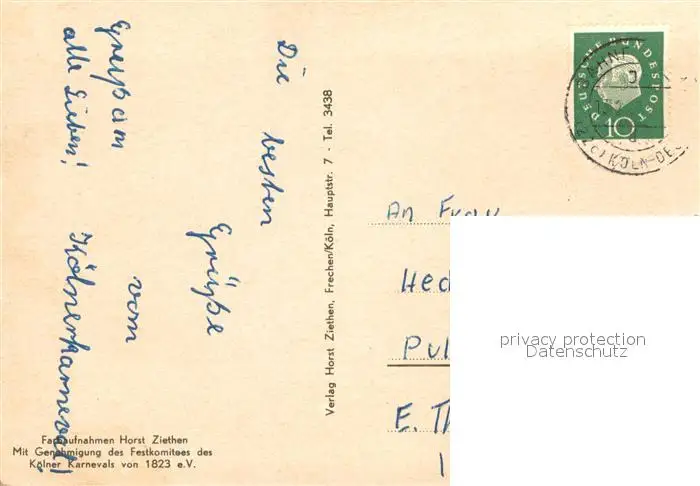 Die besten
Grüße
vom
Kölnerkarneval!
alle Lieben!
DEUTSCHE BUNDESPOST
10
KÖLN-DE
An Frau
Hed
Pul
E. Th
Verlag Horst Ziethen, Frechen/Köln, Hauptstr. 7 - Tel. 3438
Farbaufnahmen Horst Ziethen
Mit Genehmigung des Festkomitees des
Kölner Karnevals von 1823 e.V.
privacy protection
Datenschutz